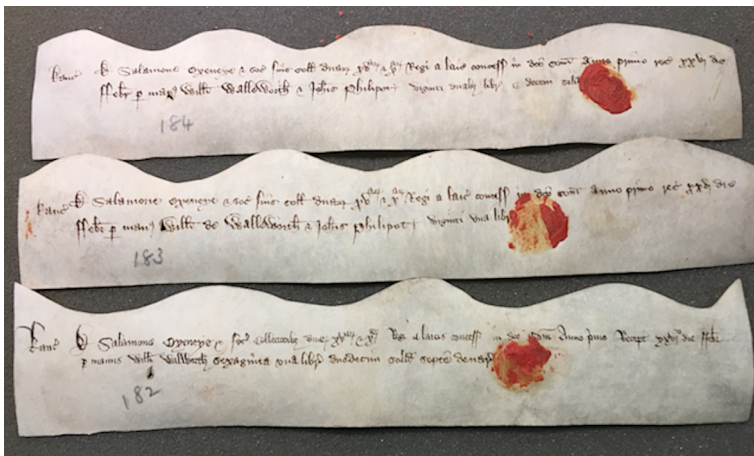 Kanc̄ D Salamone Oxeneye & soc̄ suis coll̄ duaꝝ xvᵃʳᵘᵐ & xᵃʳᵘᵐ Regi a laic̄ concess̄ in dc̄o Com̄ Anno primo rec̄ xxvj die
ffebr̄ p man Will̄i Walleworth & Joh̄is Philipot viginti duab libr̄ & decem
184
Kanc̄ D Salamone Oxeneye & soc̄ suis coll̄ duaꝝ xvᵃʳᵘᵐ & xᵃʳᵘᵐ Regi a laic̄ concess̄ in dc̄o Com̄ anno primo rec̄ die
ffebr̄ p man Will̄i de Walleworth & Joh̄is Philipot viginti una libr̄
183
Kanc̄ D Salamone Oxeneye & Soc̄ Collectoribꝫ xvᵃʳᵘᵐ & Regi a laicis concess̄ in dc̄o Com̄ Anno p̄mo Recept die ffebr̄
p manus Will̄i Walworth sexaginta una libr̄ duodecim solid̄ septē denar̄
182